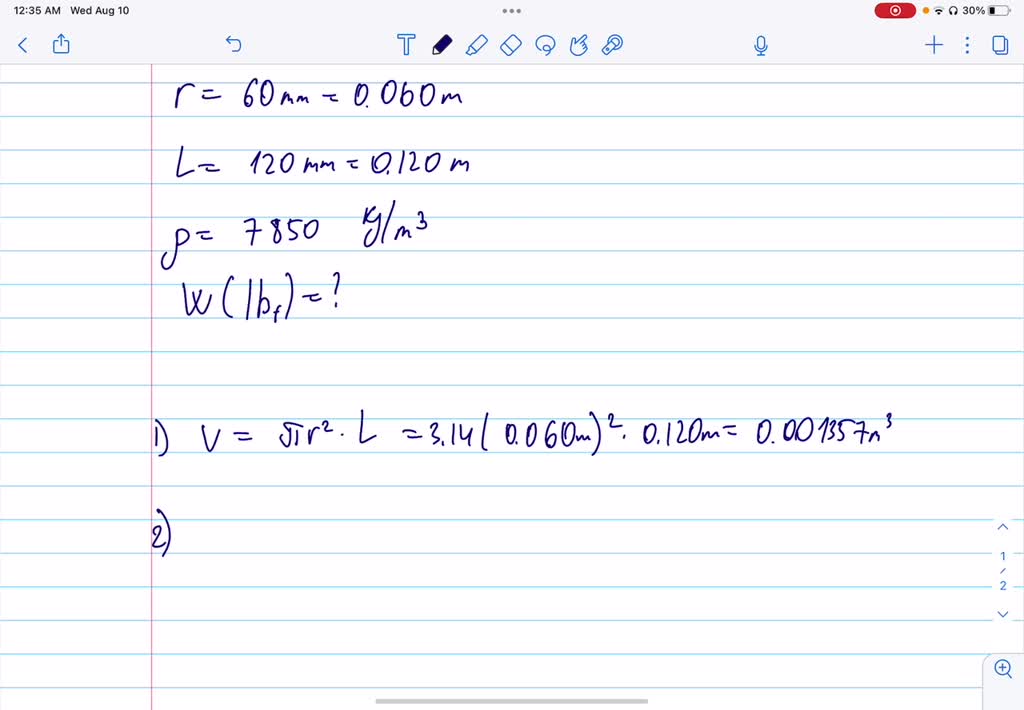 12:35 AM Wed Aug 10
30%
T
r = 60mm = 0.060m
L = 120mm = 0.120m
ρ = 7850 kg/m³
W(lbf) = ?
1) V = πr² · L = 3.14(0.060m)² · 0.120m = 0.001357m³
2)
1
/
2